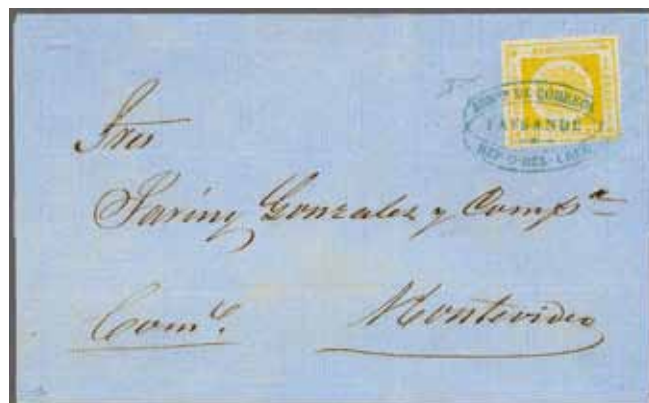 ADMON DE CORREOS
PAYSANDÚ
REP. O. DEL URUG.
Sres
Gonzalez y Compa
Com.
Montevideo